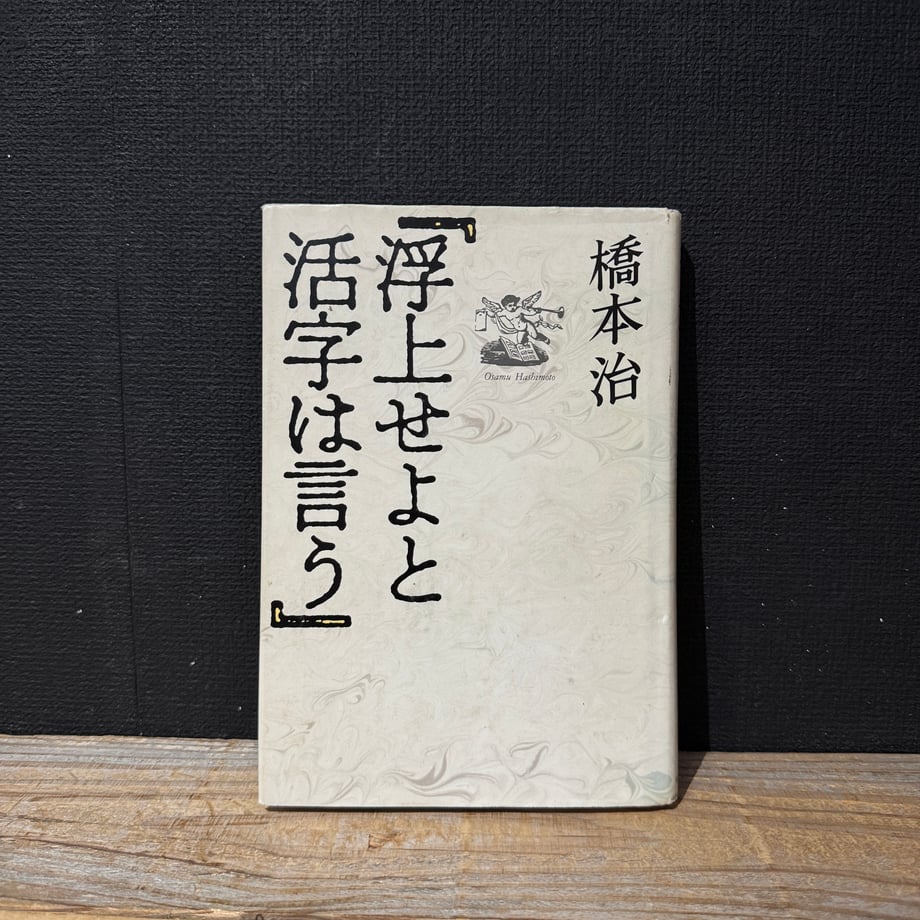 橋本治
Osamu Hashimoto
『浮上せよと
活字は言う』